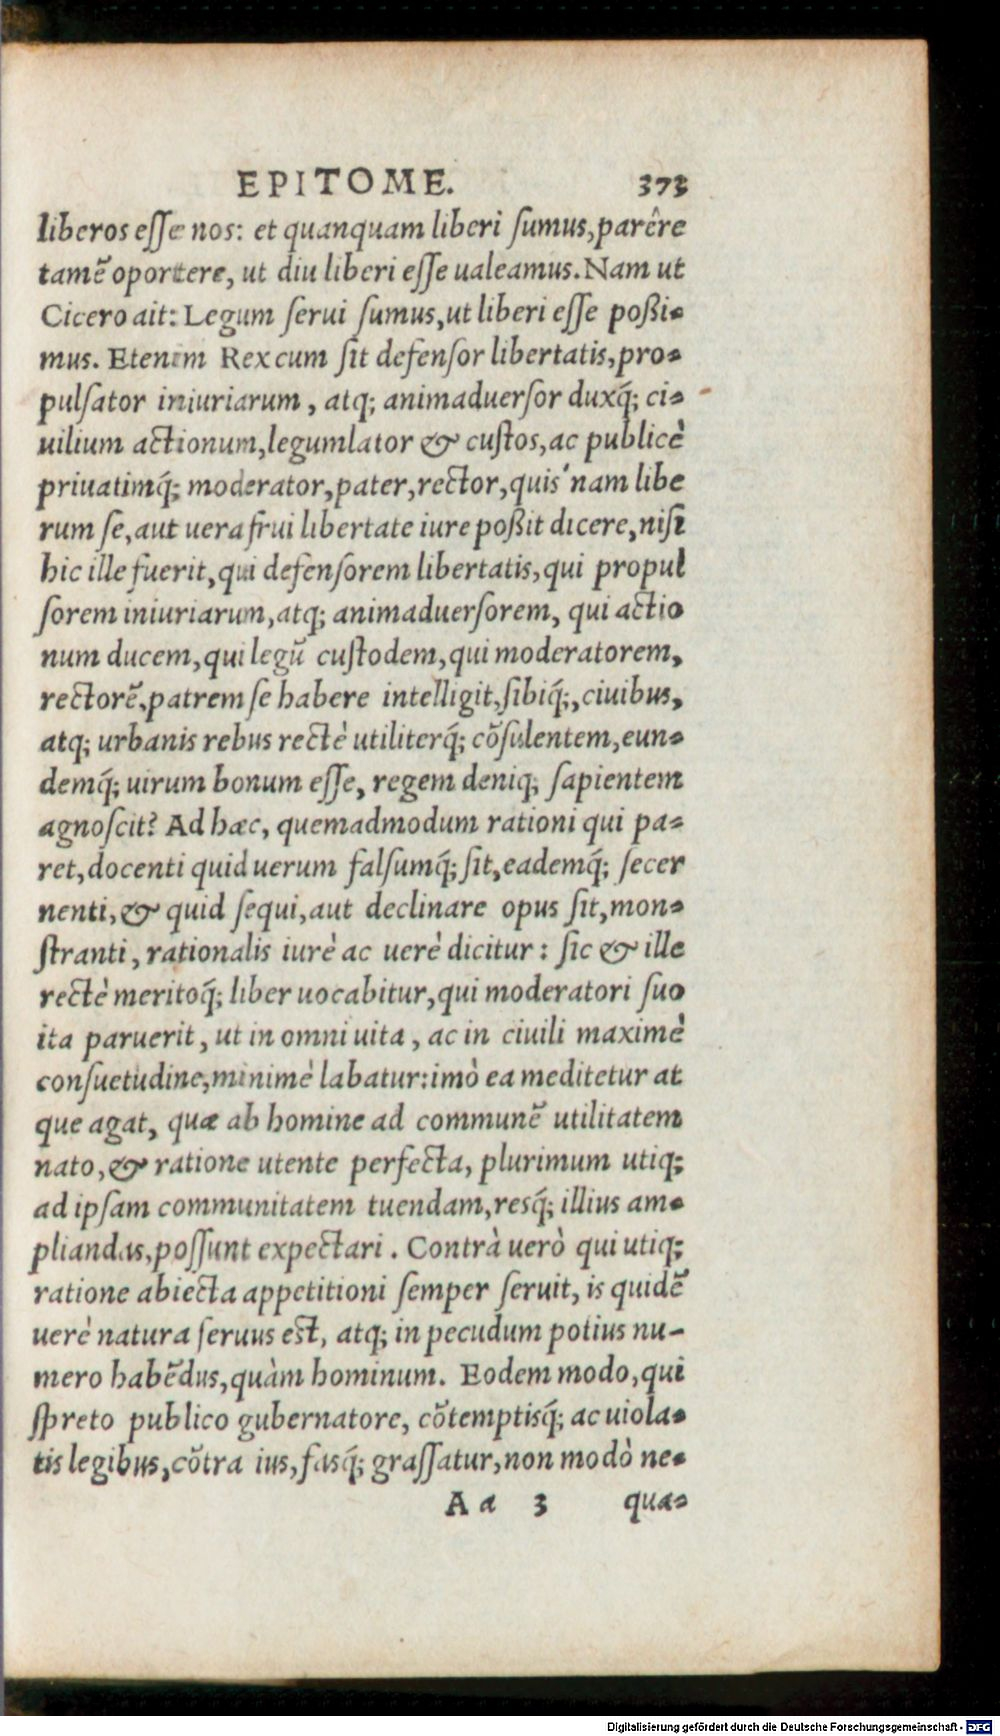 EPITOME. 373
liberos eſſe nos: et quanquam liberi ſumus, parêre
tamẽ oportere, ut diu liberi eſſe ualeamus. Nam ut
Cicero ait: Legum ſerui ſumus, ut liberi eſſe poßi-
mus. Etenim Rex cum ſit defenſor libertatis, pro-
pulſator iniuriarum, atq; animaduerſor duxq́; ci-
uilium actionum, legumlator & cuſtos, ac publicè
priuatimq́; moderator, pater, rector, quis'nam libe
rum ſe, aut uera frui libertate iure poßit dicere, niſi
hic ille fuerit, qui defenſorem libertatis, qui propul
ſorem iniuriarum, atq; animaduerſorem, qui actio
num ducem, qui legũ cuſtodem, qui moderatorem,
rectorẽ, patrem ſe habere intelligit, ſibiq́;, ciuibus,
atq; urbanis rebus rectè utiliterq́; cõſulentem, eun-
demq́; uirum bonum eſſe, regem deniq; ſapientem
agnoſcit? Ad hæc, quemadmodum rationi qui pa-
ret, docenti quid uerum falſumq́; ſit, eademq́; ſecer
nenti, & quid ſequi, aut declinare opus ſit, mon-
ſtranti, rationalis iurè ac uerè dicitur: ſic & ille
rectè meritoq́; liber uocabitur, qui moderatori ſuo
ita paruerit, ut in omni uita, ac in ciuili maximè
conſuetudine, minimè labatur: imò ea meditetur at
que agat, quæ ab homine ad communẽ utilitatem
nato, & ratione utente perfecta, plurimum utiq;
ad ipſam communitatem tuendam, resq́; illius am-
pliandas, poſſunt expectari. Contrà uerò qui utiq;
ratione abiecta appetitioni ſemper ſeruit, is quidẽ
uerè natura ſeruus eſt, atq; in pecudum potius nu-
mero habẽdus, quàm hominum. Eodem modo, qui
ſpreto publico gubernatore, cõtemptisq́; ac uiola-
tis legibus, cõtra ius, fasq́; graſſatur, non modò ne-
Aa 3 qua-
Digitalisierung gefördert durch die Deutsche Forschungsgemeinschaft - DFG